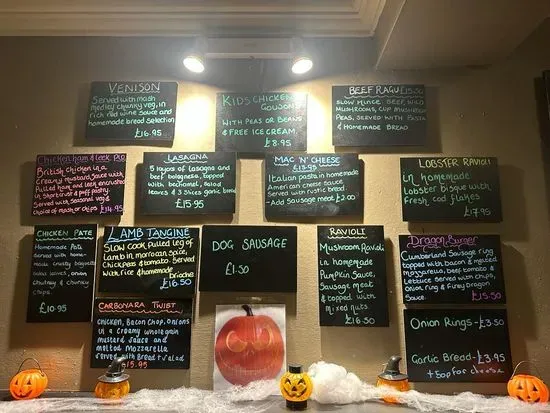 VENISON
Served with mash
medley chunky veg, in
rich red wine sauce and
homemade bread selection
£16.95
KIDS CHICKEN
GOUJONS
WITH PEAS OR BEANS
& FREE ICE CREAM
£8.95
BEEF RAGU £15.50
SLOW MINCE BEEF, WILD
MUSHROOMS, CUP MUSHROOM
PEAS, SERVED WITH PASTA
& HOMEMADE BREAD
Chicken ham & Leek Pie
British Chicken in a
Creamy mustard, Sauce with
Pulled ham and leek encrusted
in Shortcrust & puff pastry
Served with Seasonal veg &
Choice of mash or chips £14.95
LASAGNA
5 layers of lasagna and
beef bolognese, topped
with bechamel, salad
leaves and 3 slices garlic bread
£15.95
MAC 'N' CHEESE £13.95
Italian pasta in homemade
American cheese sauce
Served with rustic bread.
Add Sausage meat £2.00
LOBSTER RAVIOLI
in homemade
Lobster bisque with
fresh cod flakes
£17.95
CHICKEN PATE
Homemade Pate
served with home-
made crusty baguette
salad leaves, onion
chutney & chunky
chips.
£10.95
LAMB TANGINE
SLOW COOK pulled leg of
Lamb in moroccan spice,
Chickpeas & tomato. Served
with rice & homemade
brioche
£16.50
DOG SAUSAGE
£1.50
RAVIOLI
Mushroom Ravioli
in homemade
Pumpkin Sauce,
Sausage meat
& topped with
mixed nuts
£16.50
Dragon Burger
Cumberland Sausage ring
topped with bacon & melted
mozzarella, beef tomato &
Lettuce Served with chips,
onion ring & Firey Dragon
Sauce. £15.50
CARBONARA TWIST
chicken, Bacon Chop, onions
in a creamy wholegrain
mustard sauce and
melted mozzarella
served with Bread & salad
£15.95
Onion Rings - £3.50
Garlic Bread - £3.95
+50p for cheese